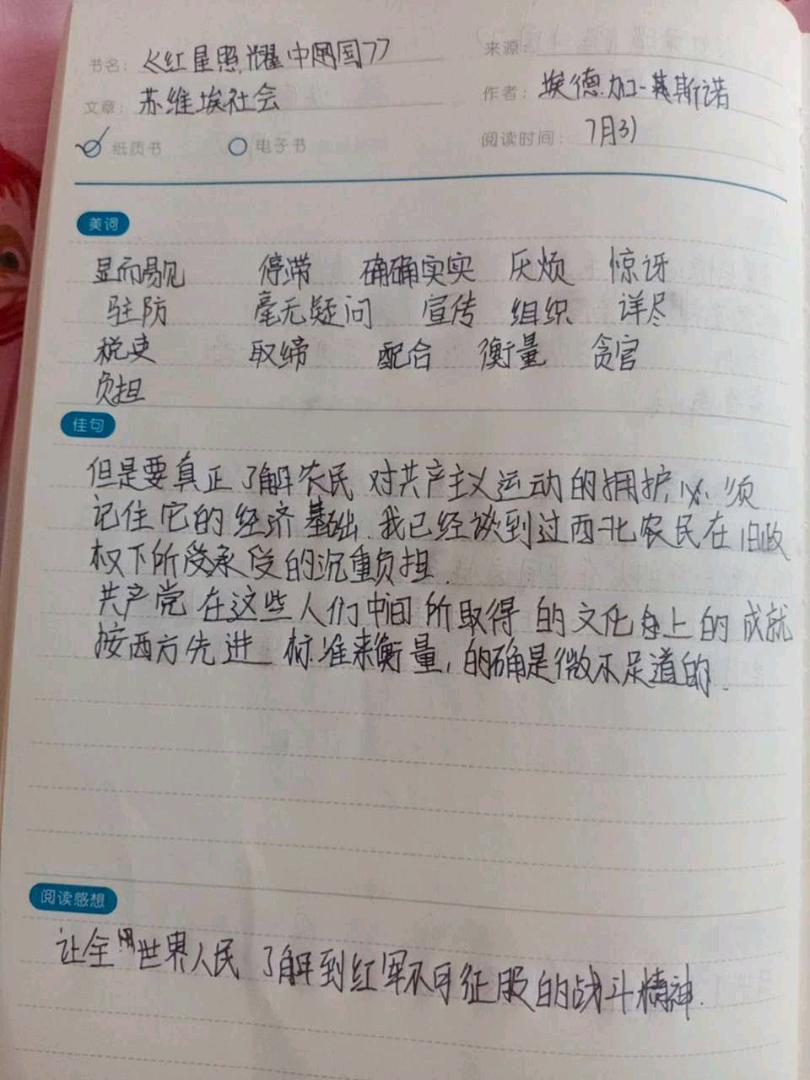 书名：《红星照耀中国》 来源：
文章：苏维埃社会 作者：埃德加·斯诺
纸质书 电子书 阅读时间：7月31
美词
显而易见 停滞 确确实实 厌烦 惊讶
驻防 毫无疑问 宣传 组织 详尽
税吏 取缔 配合 衡量 贪官
负担
佳句
但是要真正了解农民对共产主义运动的拥护，必须
记住它的经济基础.我已经谈到过西北农民在旧政
权下所承受的沉重负担.
共产党在这些人们中间所取得的文化上的成就
按西方先进标准来衡量，的确是微不足道的.
阅读感想
让全世界人民了解到红军不可征服的战斗精神.